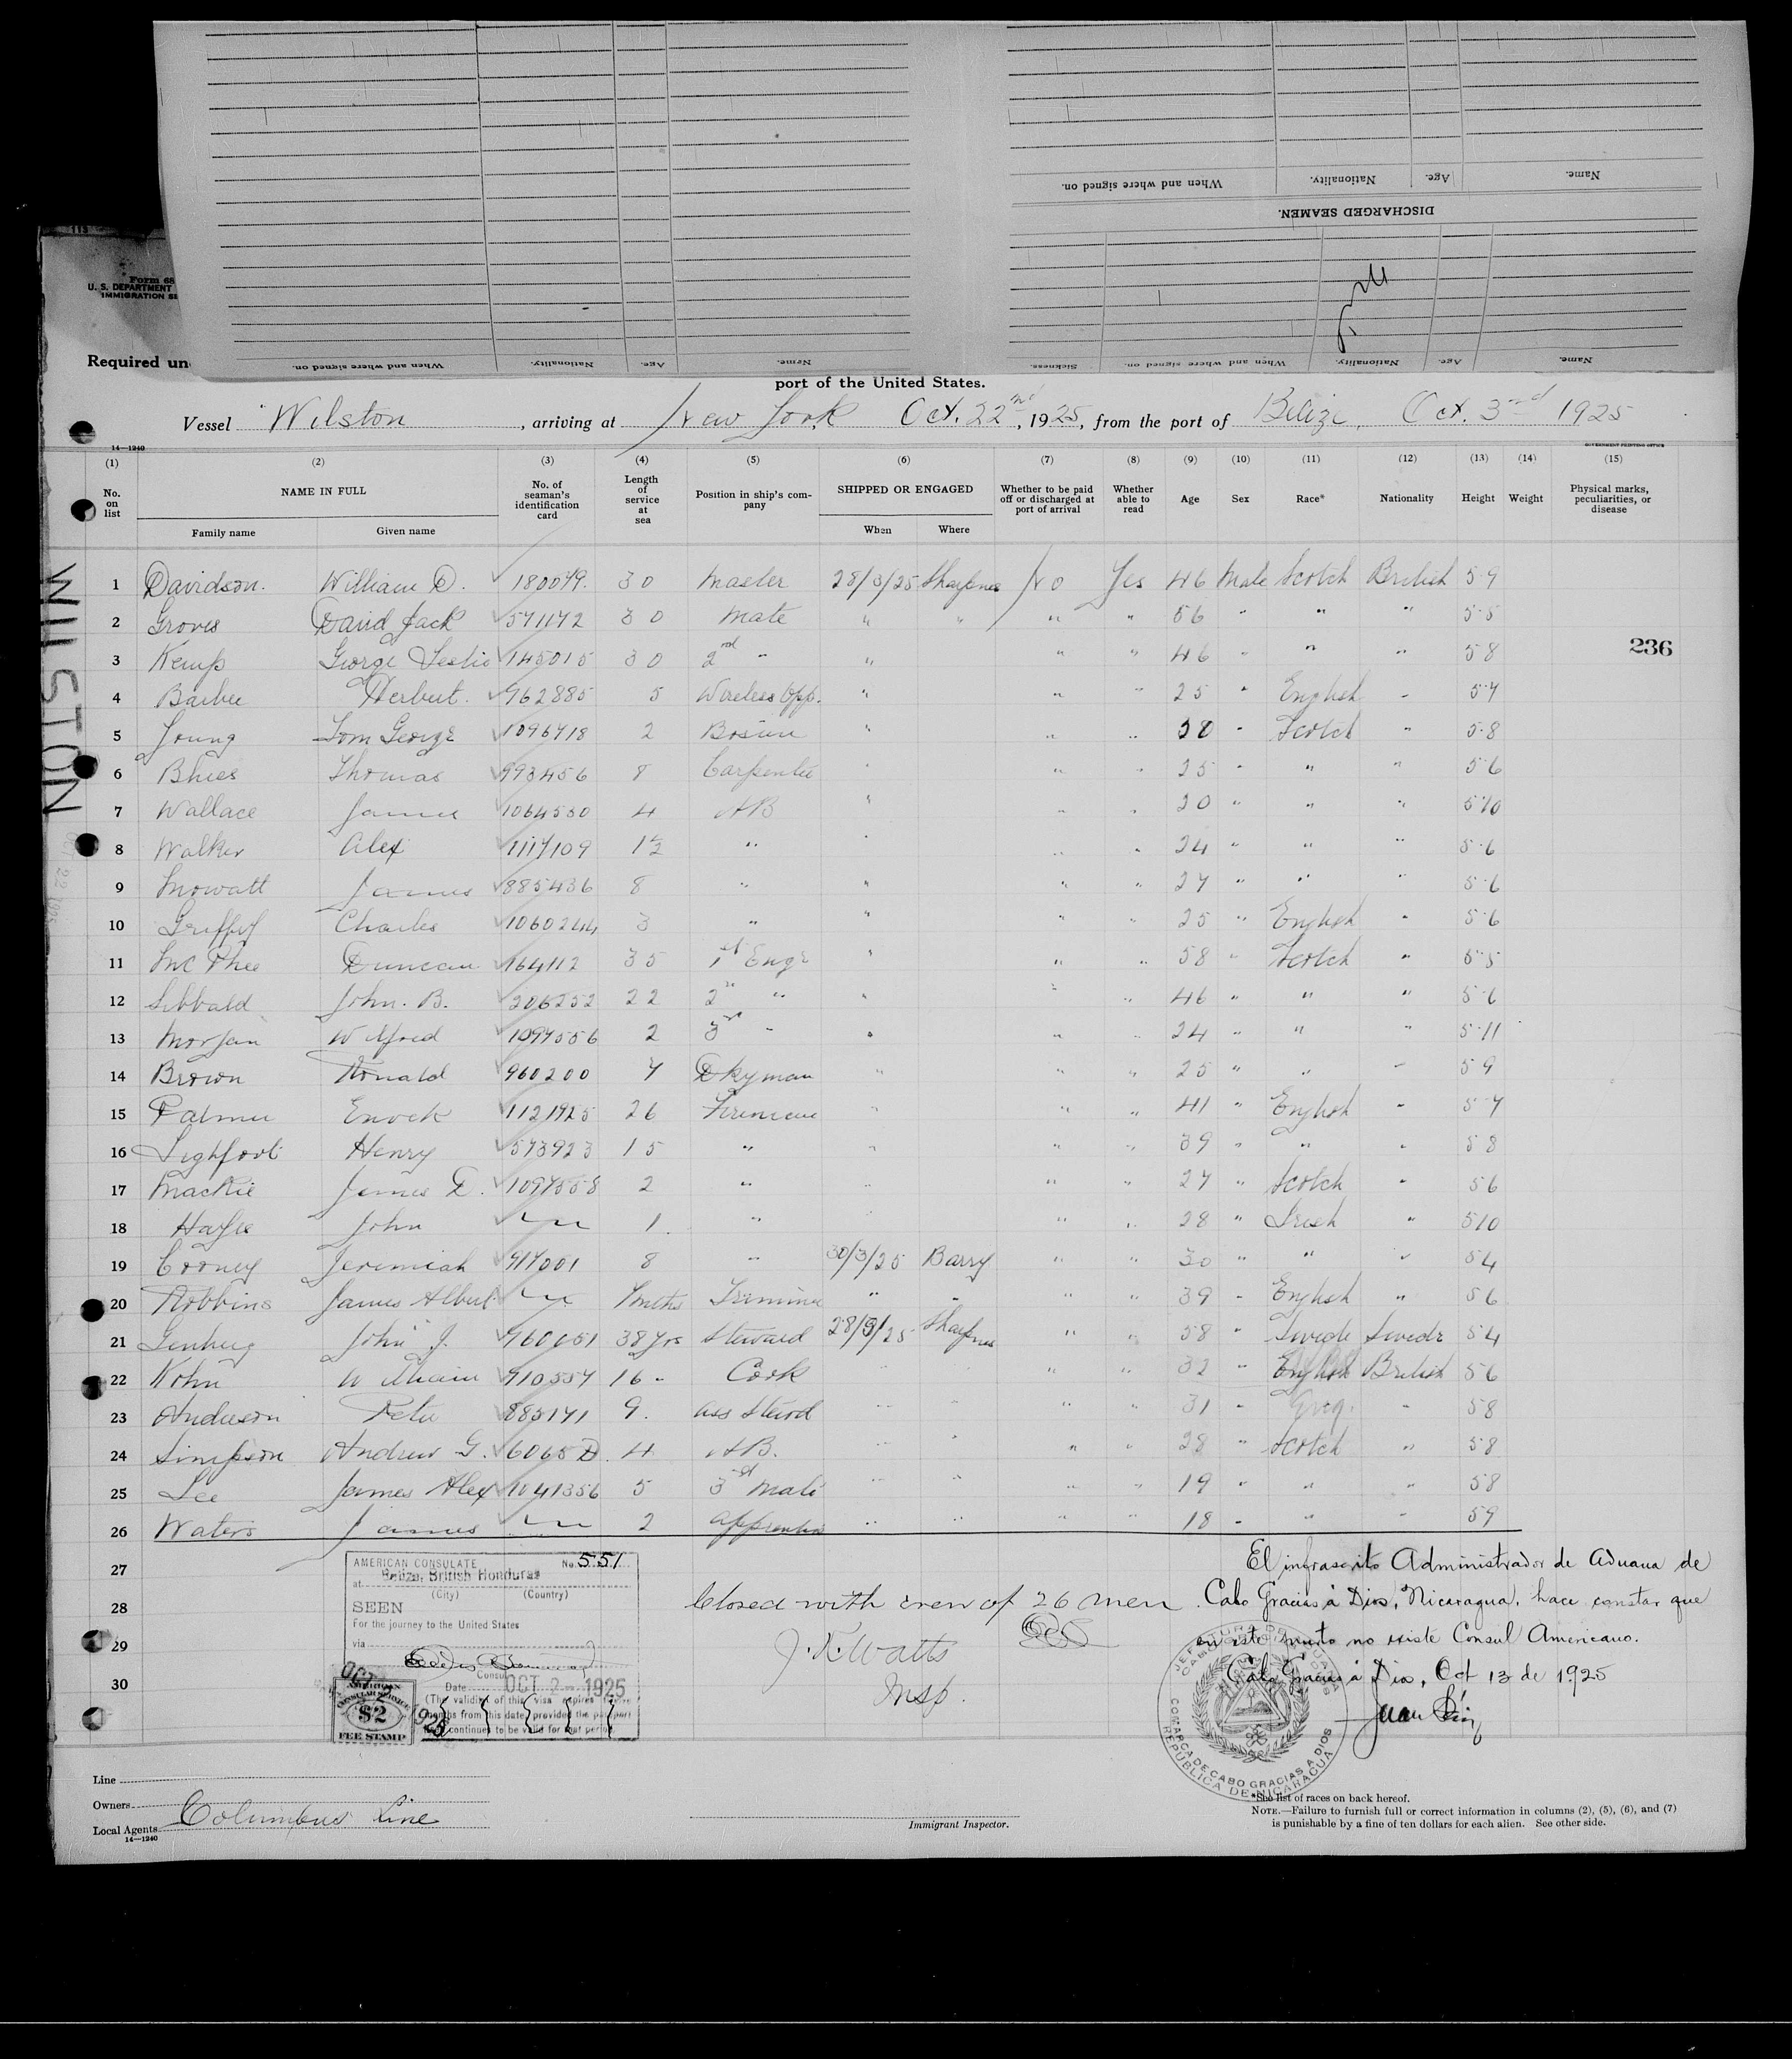 Name.
Age.
Nationality.
When and where signed on.
DISCHARGED SEAMEN.
Name.
Age.
Nationality.
When and where signed on.
Sickness.
Name.
Age.
Nationality.
When and where signed on.
Form 68
U. S. DEPARTMENT
IMMIGRATION SE
Required un
port of the United States.
Vessel Wilston, arriving at New York Oct. 22nd, 1925, from the port of Belize, Oct. 3rd 1925
14—1240
GOVERNMENT PRINTING OFFICE
(1) (2) (3) (4) (5) (6) (7) (8) (9) (10) (11) (12) (13) (14) (15)
No. on list NAME IN FULL No. of seaman's identification card Length of service at sea Position in ship's company SHIPPED OR ENGAGED Whether to be paid off or discharged at port of arrival Whether able to read Age Sex Race* Nationality Height Weight Physical marks, peculiarities, or disease
Family name Given name When Where
1 Davidson. William D. 180079. 30 Master 28/3/25 No Yes 46 Male Scotch British 5 9
2 Groves David Jack 571172 30 Mate " " " " 56 " " " 5-5
3 Kemp George Leslie 145015 30 2nd " " " " 46 " " " 5 8
236
4 Herbert. 962885 5 Wireless Opp. " " " 25 " English " 5-7
5 Young Tom George 1096718 2 Bosun " " " " Scotch " 5-8
6 Thomas 993456 8 Carpenter " " " 25 " " " 5-6
7 Wallace James 1064550 4 AB " " " 20 " " " 5-10
8 Walker Alex 1117109 1½ " " " " 24 " " " 5-6
9 Mowatt James 885436 8 " " " " 27 " " " 5-6
10 Charles 1060244 3 " " " " 25 " English " 5-6
11 McPhee Duncan 164112 35 1st Engr " " " 58 " Scotch " 5-5
12 Sibbald John. B. 206252 22 2nd " " " " 46 " " " 5-6
13 Morgan Wilfred 1097556 2 3rd " " " " 24 " " " 5-11
14 Brown Ronald 960200 7 Dkyman " " " 25 " " " 5 9
15 Palmer Enock 1121925 26 Fireman " " " 41 " English " 5-7
16 Lightfoot Henry 573923 15 " " " " 39 " " " 5 8
17 Mackie James D. 1097558 2 " " " " 27 " Scotch " 5 6
18 John 1 " " " " 28 " Irish " 5 10
19 Cooney Jeremiah 917001 8 " 30/3/25 Barry " " 30 " " " 5 4
20 Robbins James Albert 7 mths Trimmer " " " " 39 " English " 5 6
21 John J. 960051 38 yrs Steward 28/3/25 " " 58 " Swede Swede 5 4
22 Kohn William 910557 16 " Cook " " " 32 " English British 5 6
23 Anderson Peter 885171 9. ass Steward " " " " 31 " " 5 8
24 Simpson Andrew G. 6065 D. 4 AB. " " " " 28 " Scotch " 5 8
25 Lee James Alex 1041356 5 3rd Mate " " " " 19 " " " 5 8
26 Waters James 2 apprentice " " " " 18 " " " 5 9
27
28
29
30
WILSTON
AMERICAN CONSULATE No. 551
at Belize, British Honduras
(City) (Country)
SEEN
For the journey to the United States
via
Consul
Date OCT 2 - 1925
(The validity of this visa expires
months from this date, provided the passport
continues to be valid for that period.)
OCT 2 1925
AMERICAN
CONSULAR SERVICE
$2
FEE STAMP
Closed with crew of 26 men
J. K. Watts
Insp.
El infrascrito Administrador de Aduana de
Cabo Gracias á Dios, Nicaragua, hace constar que
en este puerto no existe Consul Americano.
Cabo Gracias á Dios, Oct 13 de 1925
COMARCA DE CABO GRACIAS A DIOS
REPUBLICA DE NICARAGUA
Line
Owners
Local Agents Columbus Line
14—1240
Immigrant Inspector.
*See list of races on back hereof.
NOTE.—Failure to furnish full or correct information in columns (2), (5), (6), and (7)
is punishable by a fine of ten dollars for each alien. See other side.